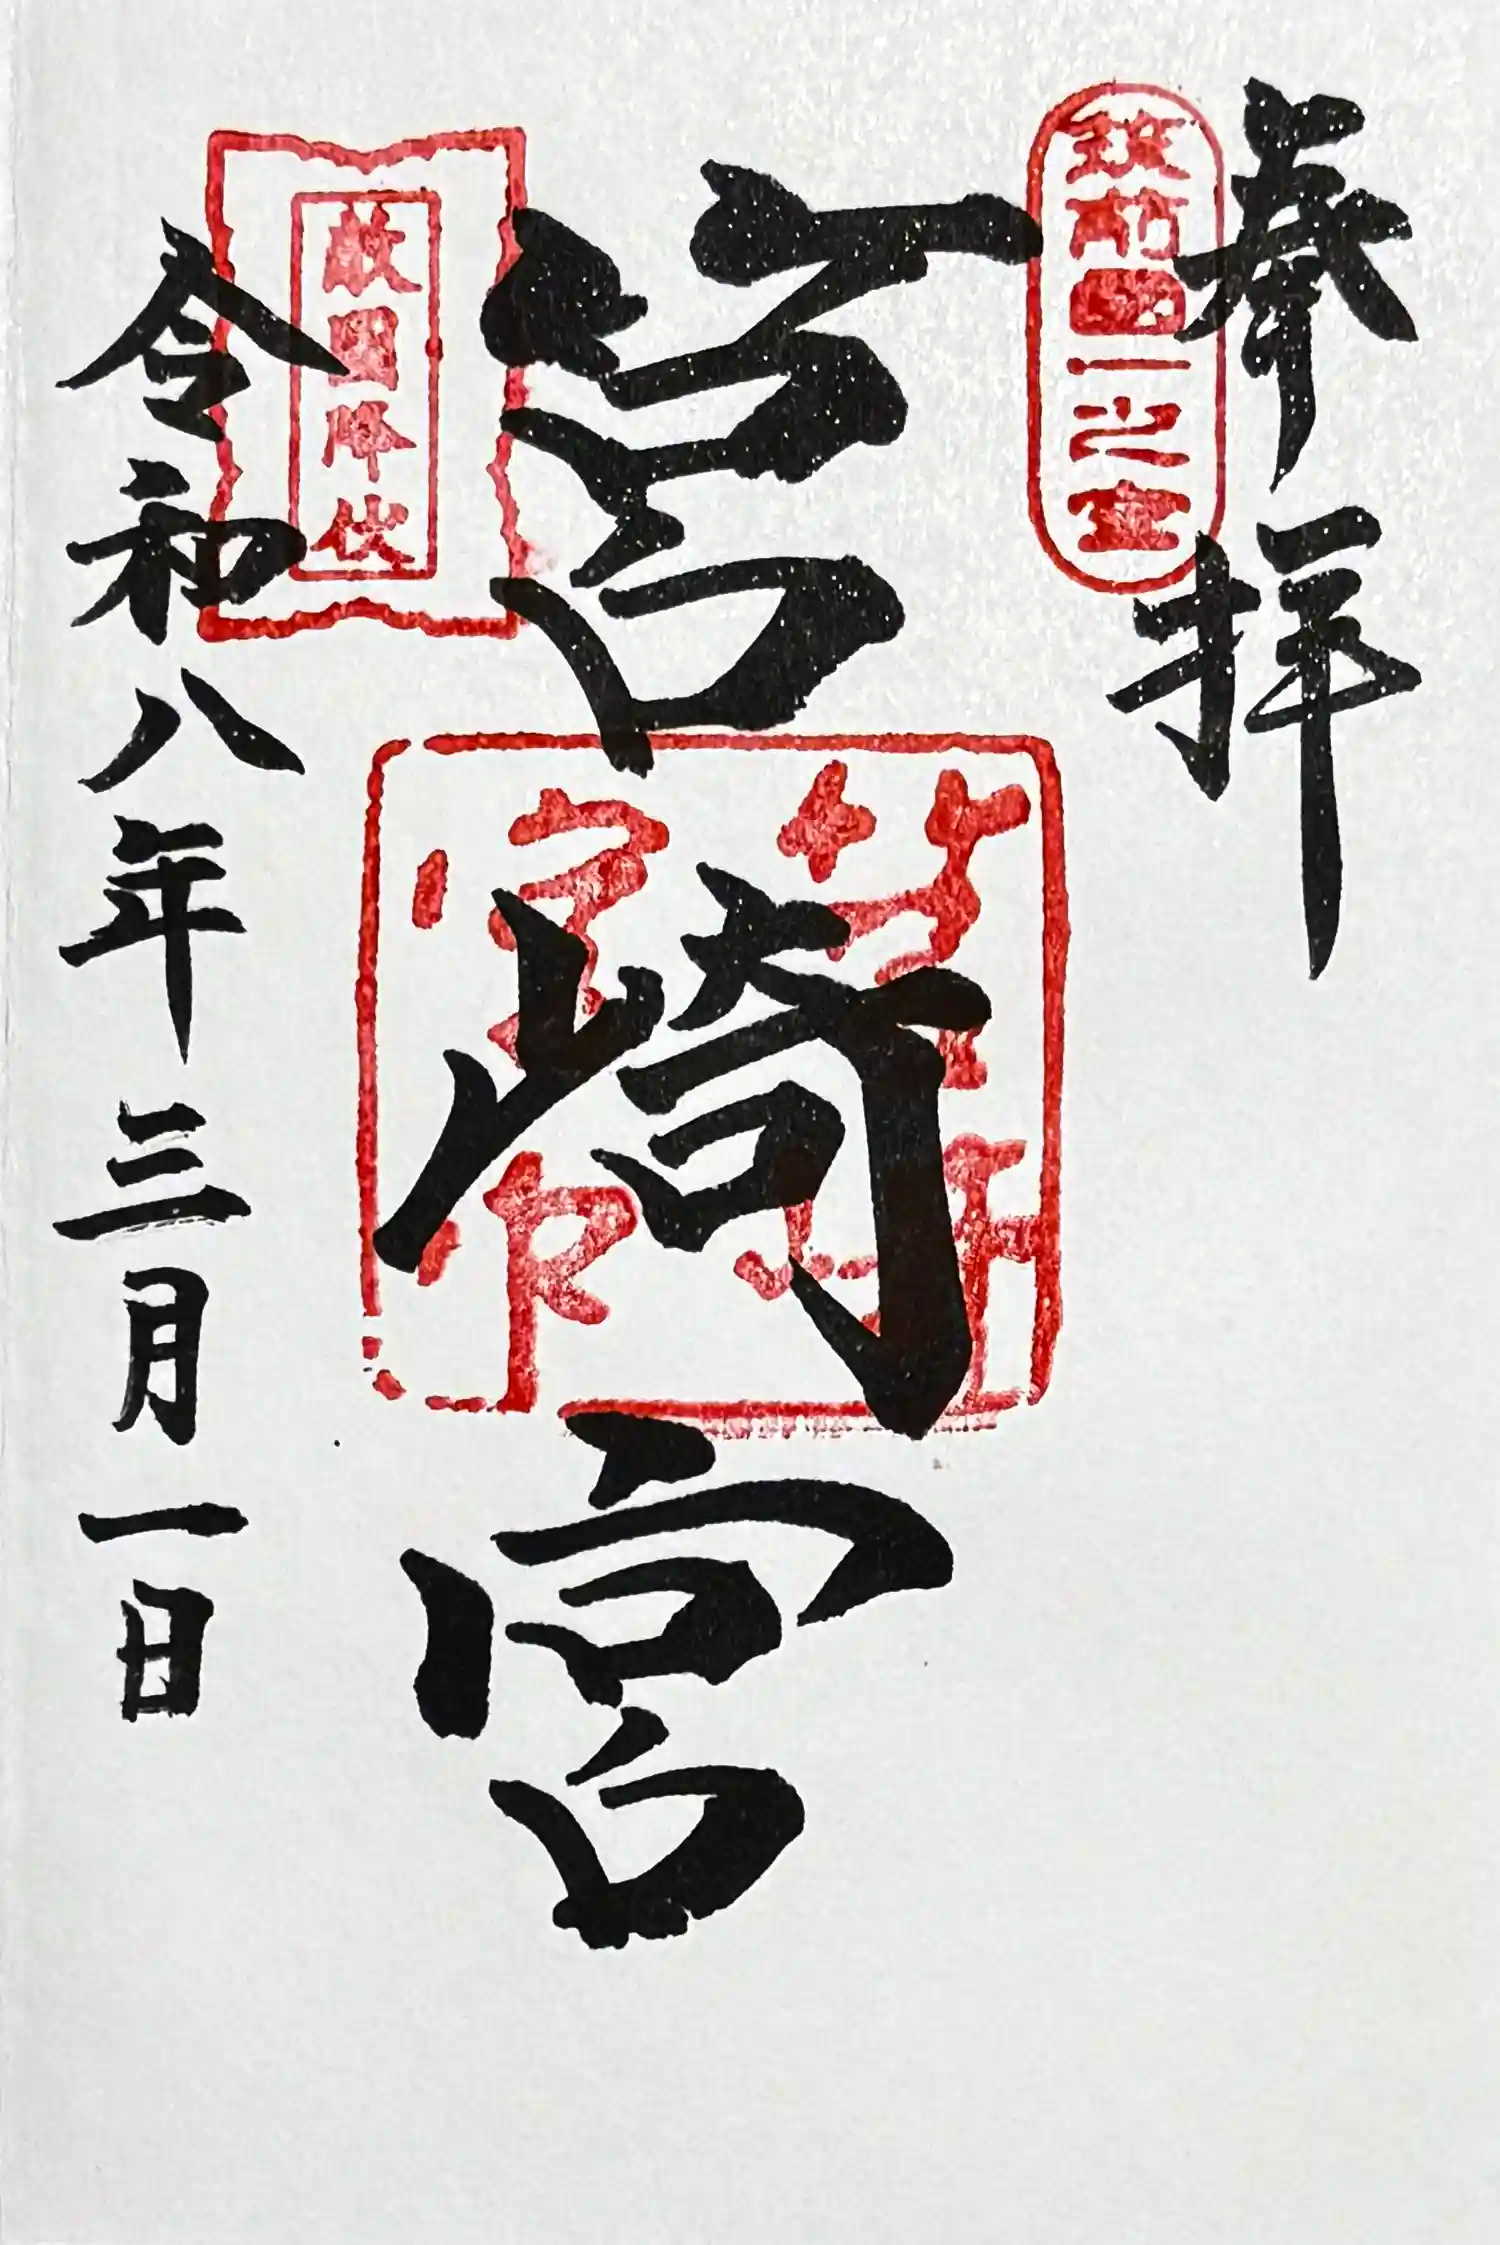 奉拝
筑前國一之宮
筥崎宮
筥崎
宮印
敵国降伏
令和八年三月一日